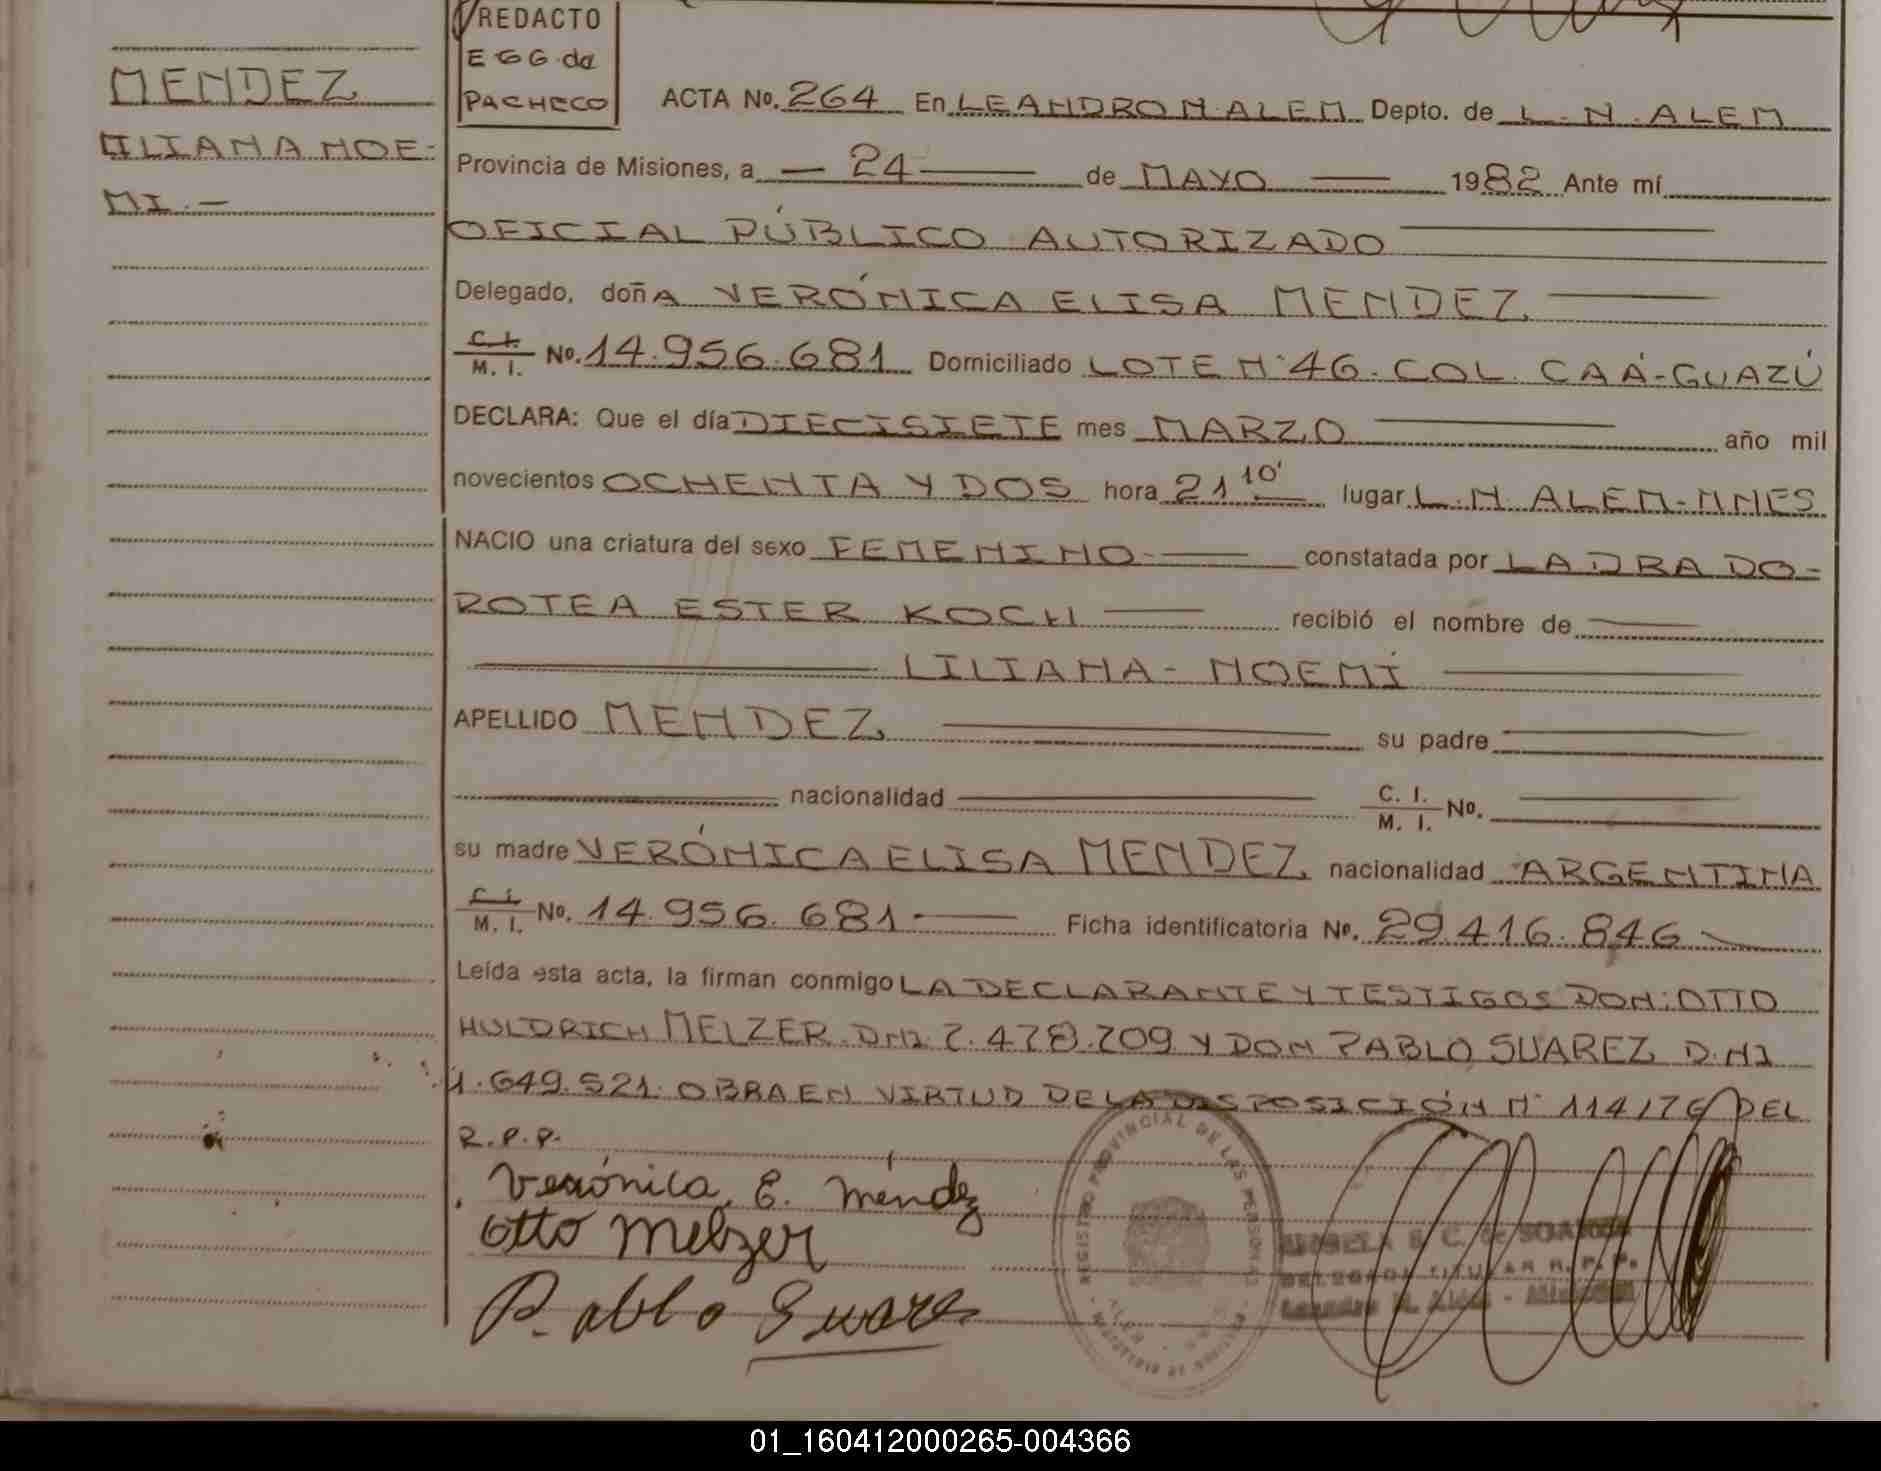 REDACTO
EGG de
PACHECO
MENDEZ
LILIANA NOE-
MI.-
ACTA No. 264 En LEANDRO N. ALEM Depto. de L. N. ALEM
Provincia de Misiones, a — 24 — de MAYO — 1982 Ante mí
OFICIAL PÚBLICO AUTORIZADO
Delegado, doñA VERÓNICA ELISA MENDEZ
C. I. / M. I. No. 14.956.681 Domiciliado LOTE N° 46. COL. CAÁ-GUAZÚ
DECLARA: Que el día DIECISIETE mes MARZO año mil
novecientos OCHENTA Y DOS hora 21 10' lugar L. N. ALEM-MNES
NACIO una criatura del sexo FEMENINO constatada por LA DRA DO-
ROTEA ESTER KOCH recibió el nombre de
LILIANA-NOEMÍ
APELLIDO MENDEZ su padre
nacionalidad C. I. / M. I. No.
su madre VERÓNICA ELISA MENDEZ nacionalidad ARGENTINA
C. I. / M. I. No. 14.956.681 Ficha identificatoria No. 29.416.846
Leída esta acta, la firman conmigo LA DECLARANTE Y TESTIGOS DON: OTTO
HULDRICH MELZER DNI. 7.478.709 Y DON PABLO SUAREZ D.NI
1.649.521. OBRA EN VIRTUD DE LA DISPOSICIÓN N° 114/76 DEL
R.P.P.
Verónica. E. Méndez
Otto Melzer
Pablo Suarez
REGISTRO PROVINCIAL DE LAS PERSONAS
DELEGADA TITULAR R. P. P.
Leandro N. Alem - Misiones
01_160412000265-004366